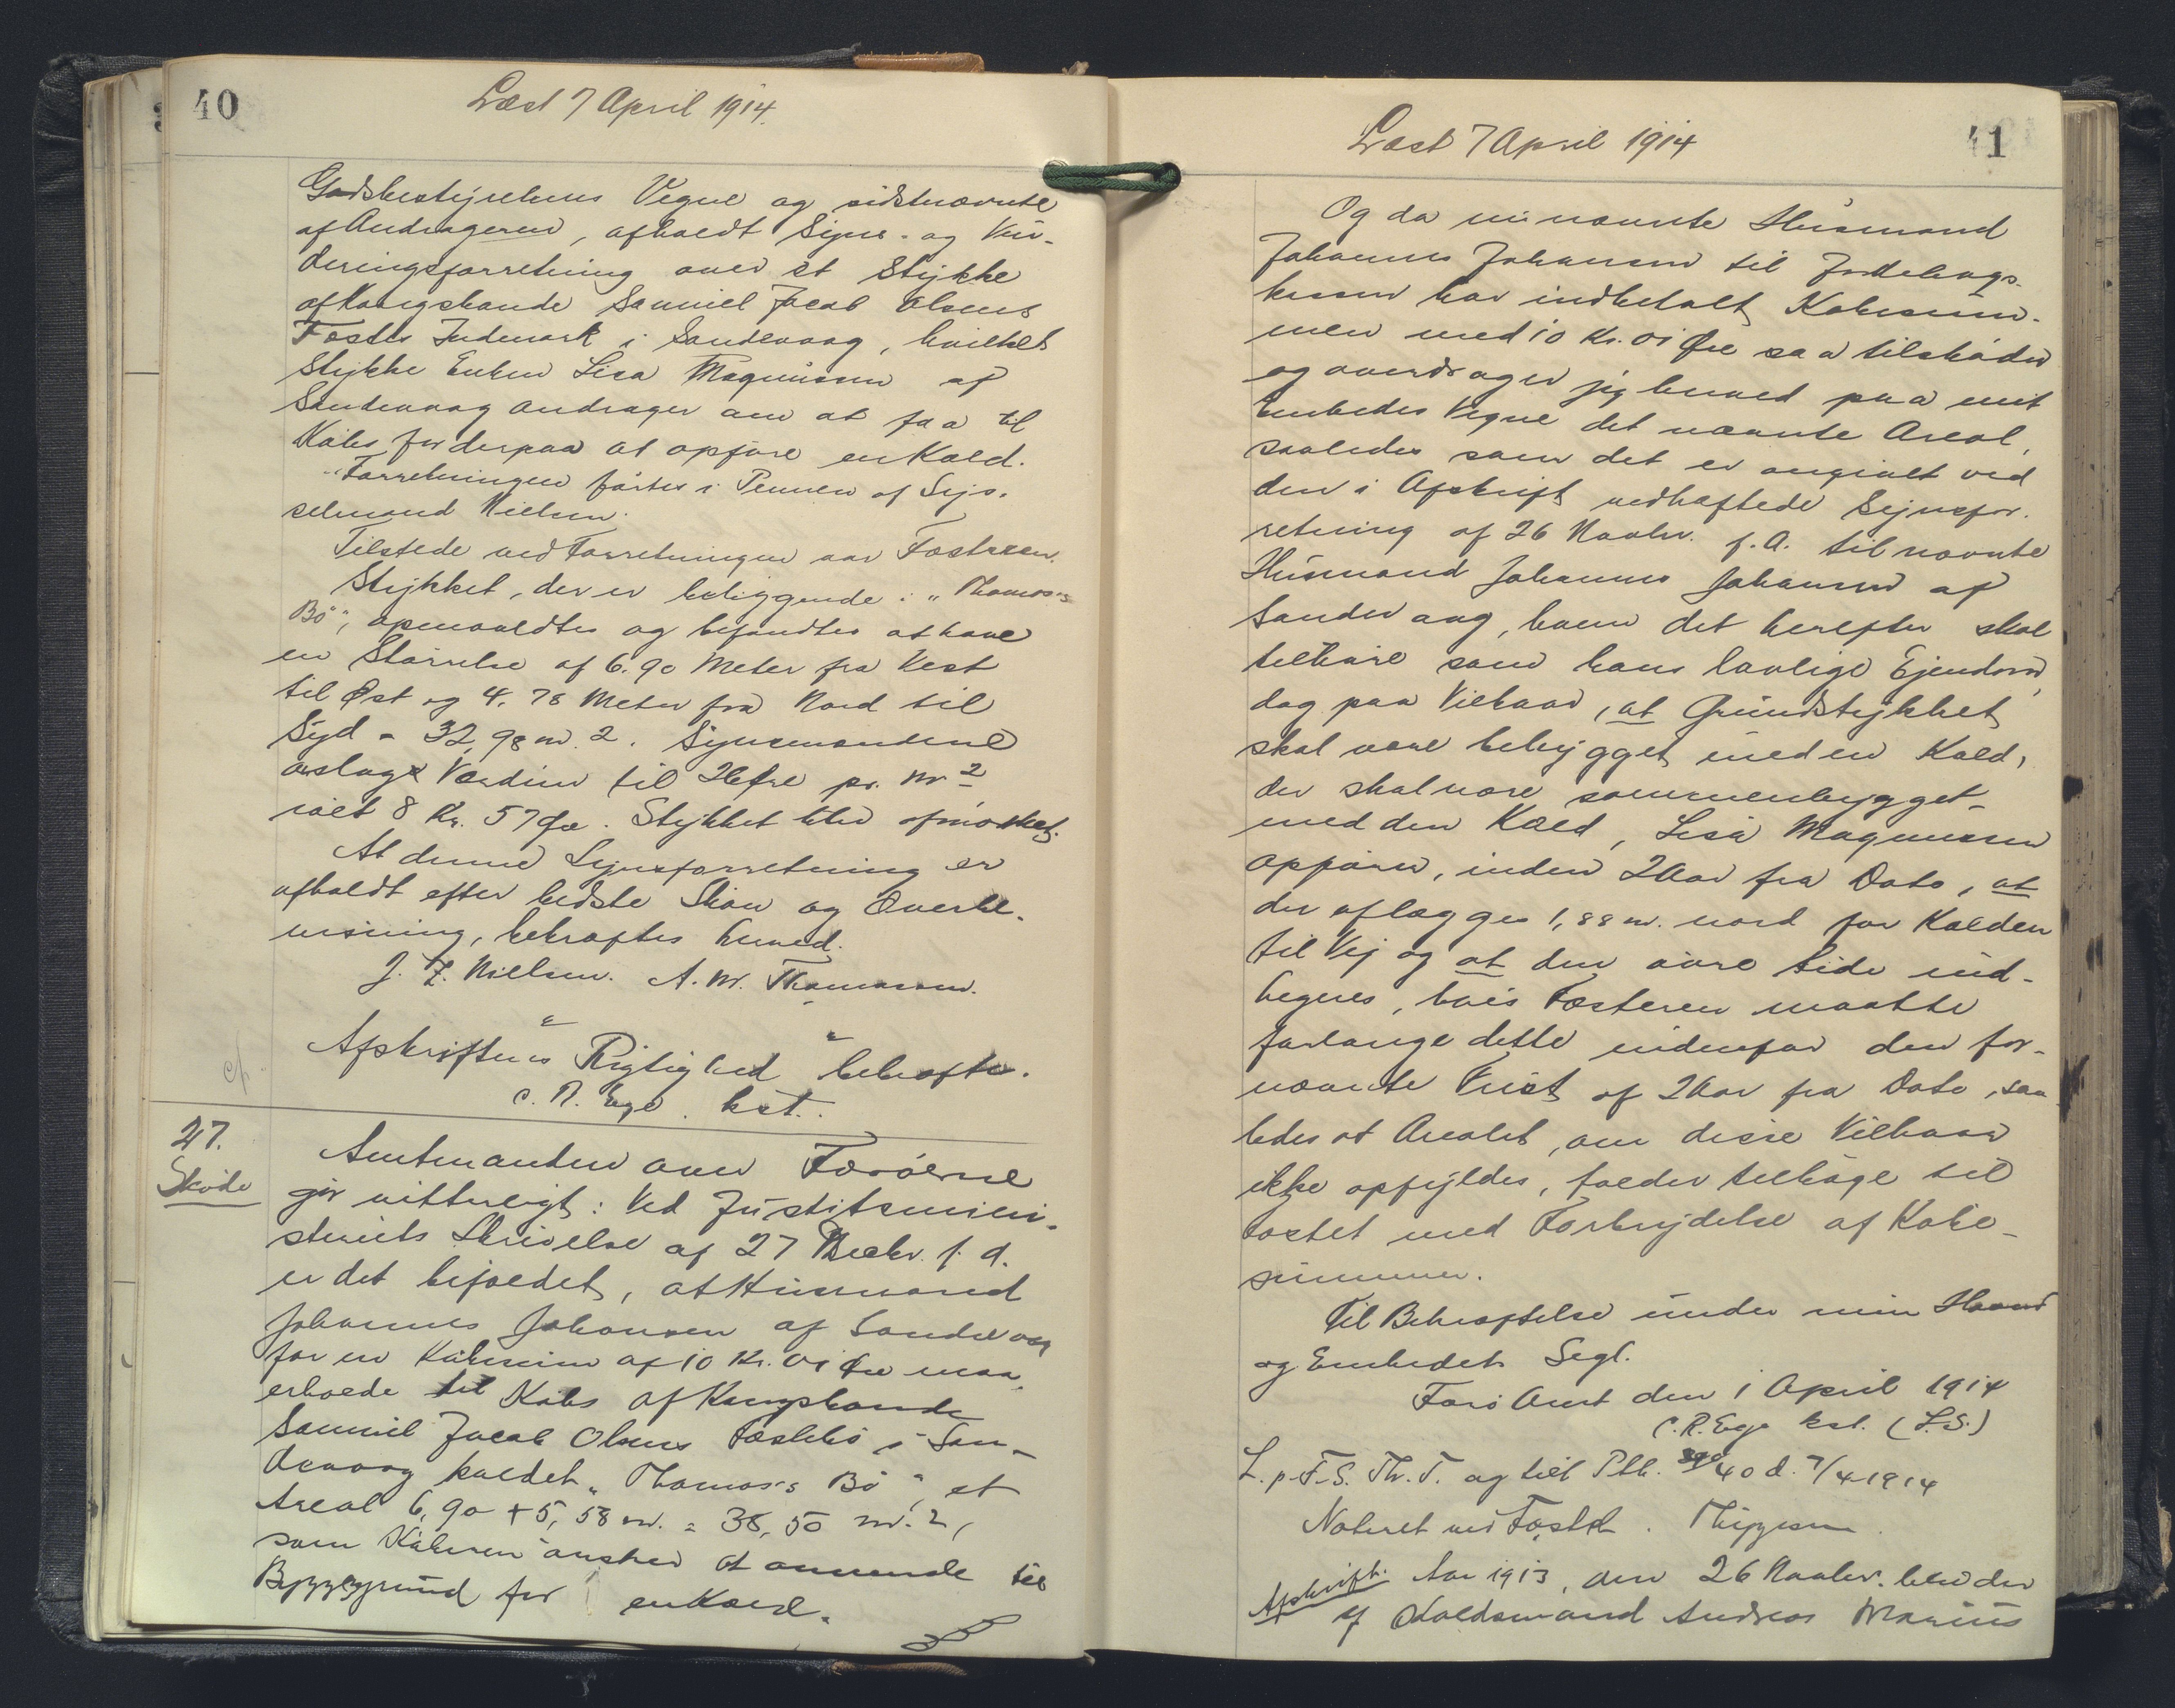 40
Læst 7 April 1914.
Godsbestyrelsens Vegne og sidstnævnte
af Andrageren, afholdt Syns- og Vur-
deringsforretning over et Stykke
af Kongsbonde Samuel Jacob Olsens
Fæstes Indmark i Sandevaag, hvilket
Stykke Enken Lisa Magnussen af
Sandevaag andrager om at faa til
Købs for derpaa at opføre en Kæld.
Forretningen førtes i Pennen af Sys-
selmand Nielsen.
Tilstede ved Forretningen var Fæsteren.
Stykket, der er beliggende i "Thomas's
Bø", opmaaldtes og befandtes at have
en Størrelse af 6.90 Meter fra Vest
til Øst og 4.78 Meter fra Nord til
Syd = 32,98 m. 2. Synsmændene
ansloge Værdien til 26 Øre pr. m 2
ialt 8 Kr. 57 Øre. Stykket blev afmærket.
At denne Synsforretning er
afholdt efter bedste Skøn og Overbe-
visning, bekræftes herved.
J. F. Nielsen. A. M. Thomassen.
Afskriftens Rigtighed bekræftes.
C. R. Ege. kst.
27.
Skøde
Amtmanden over Færøerne
gør vitterligt: Ved Justitsmini-
steriets Skrivelse af 27 Decbr. f. A.
er det bifaldet, at Husmand
Johannes Johansen af Sandevaag
for en Købesum af 10 Kr. 01 Øre maa
erholde til Købs af Kongsbonde
Samuel Jacob Olsens Fæstebø i San-
devaag kaldet "Thomas's Bø", et
Areal 6,90 + 5,58 m. = 38,50 m. 2,
som Køberen ønsker at anvende til
Byggegrund for en Kæld.
41
Læst 7 April 1914
Og da nu nævnte Husmand
Johannes Johansen til Jordebogs-
kassen har indbetalt Købesum-
men med 10 Kr. 01 Øre saa tilskøder
og overdrager jeg herved paa mit
Embedes Vegne det nævnte Areal,
saaledes som det er angivet ved
den i Afskrift vedhæftede Synsfor-
retning af 26 Novbr. f. A. til nævnte
Husmand Johannes Johansen af
Sandevaag, hvem det herefter skal
tilhøre som hans lovlige Ejendom,
dog paa Vilkaar, at Grundstykket
skal være bebygget med en Kæld,
der skal være sammenbygget
med den Kæld, Lisa Magnussen
opfører, inden 2 Aar fra Dato, at
der aflægges 1,88 m. nord for Kælden
til Vej og at den øvre Side ind-
hegnes, hvis Fæsteren maatte
forlange dette indenfor den for-
nævnte Frist af 2 Aar fra Dato, saa
ledes at Arealet, om disse Vilkaar
ikke opfyldes, falder tilbage til
Fæstet med Fortrydelse af Købe-
summen.
Til Bekræftelse under min Haand
og Embedets Segl.
Færø Amt den 1 April 1914
C. R. Ege kst. (L.S.)
L. p. F. S. Th. T. og til Ptb. 40 d. 7/4 1914
Noteret ved Fæstet.
Afskrift. Aar 1913, den 26 Novbr. blev der
af Oldsmand Andreas Marius